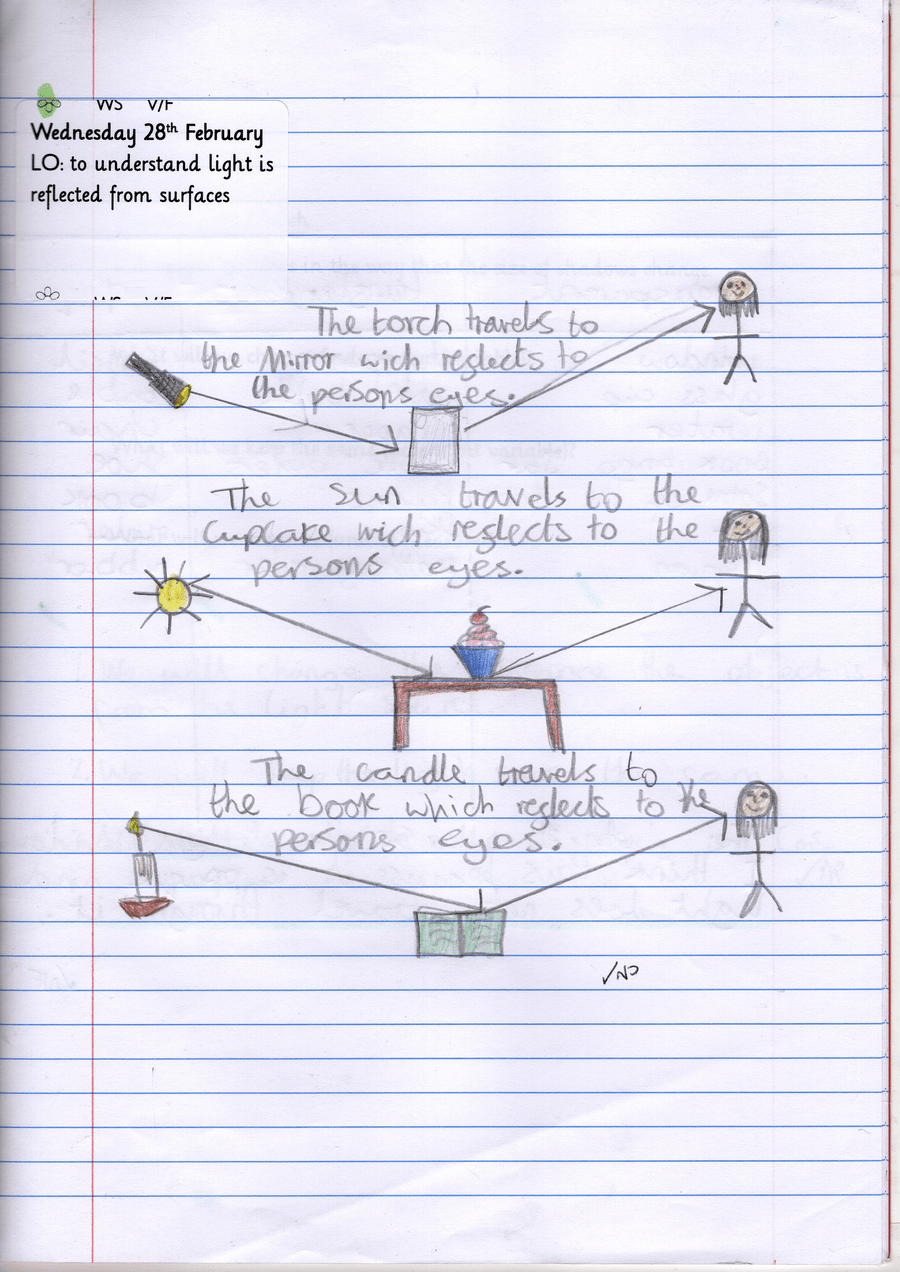 WS V/F
Wednesday 28th February
LO: to understand light is
reflected from surfaces
WS V/F
The torch travels to
the Mirror wich reglects to
the persons eyes.
The sun travels to the
Cupcake wich reglects to the
persons eyes.
The candle travels to
the book which reglects to the
persons eyes.